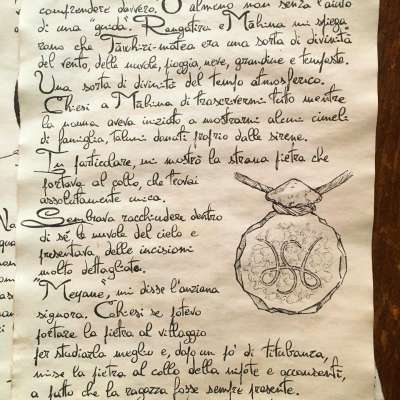 comprendere davvero. O almeno non senza l'aiuto
di una "guida". Rangatira e Māhina mi spiega
rono che Tāwhiri-matea era una sorta di divinità
del vento, delle nuvole, pioggia, neve, grandine e tempeste.
Una sorta di divinità del tempo atmosferico.
Chiesi a Māhina di trascrivermi tutto mentre
la nonna aveva iniziato a mostrarmi alcuni cimeli
di famiglia, taluni donati proprio dalle sirene.
In particolare, mi mostrò la strana pietra che
portava al collo, che trovai
assolutamente unica.
Sembrava racchiudere dentro
di sé le nuvole del cielo e
presentava delle incisioni
molto dettagliate.
"Meyane", mi disse l'anziana
signora. Chiesi se potevo
portare la pietra al villaggio
per studiarla meglio e, dopo un po' di titubanza,
mise la pietra al collo della nipote e acconsentì,
a patto che la ragazza fosse sempre presente.